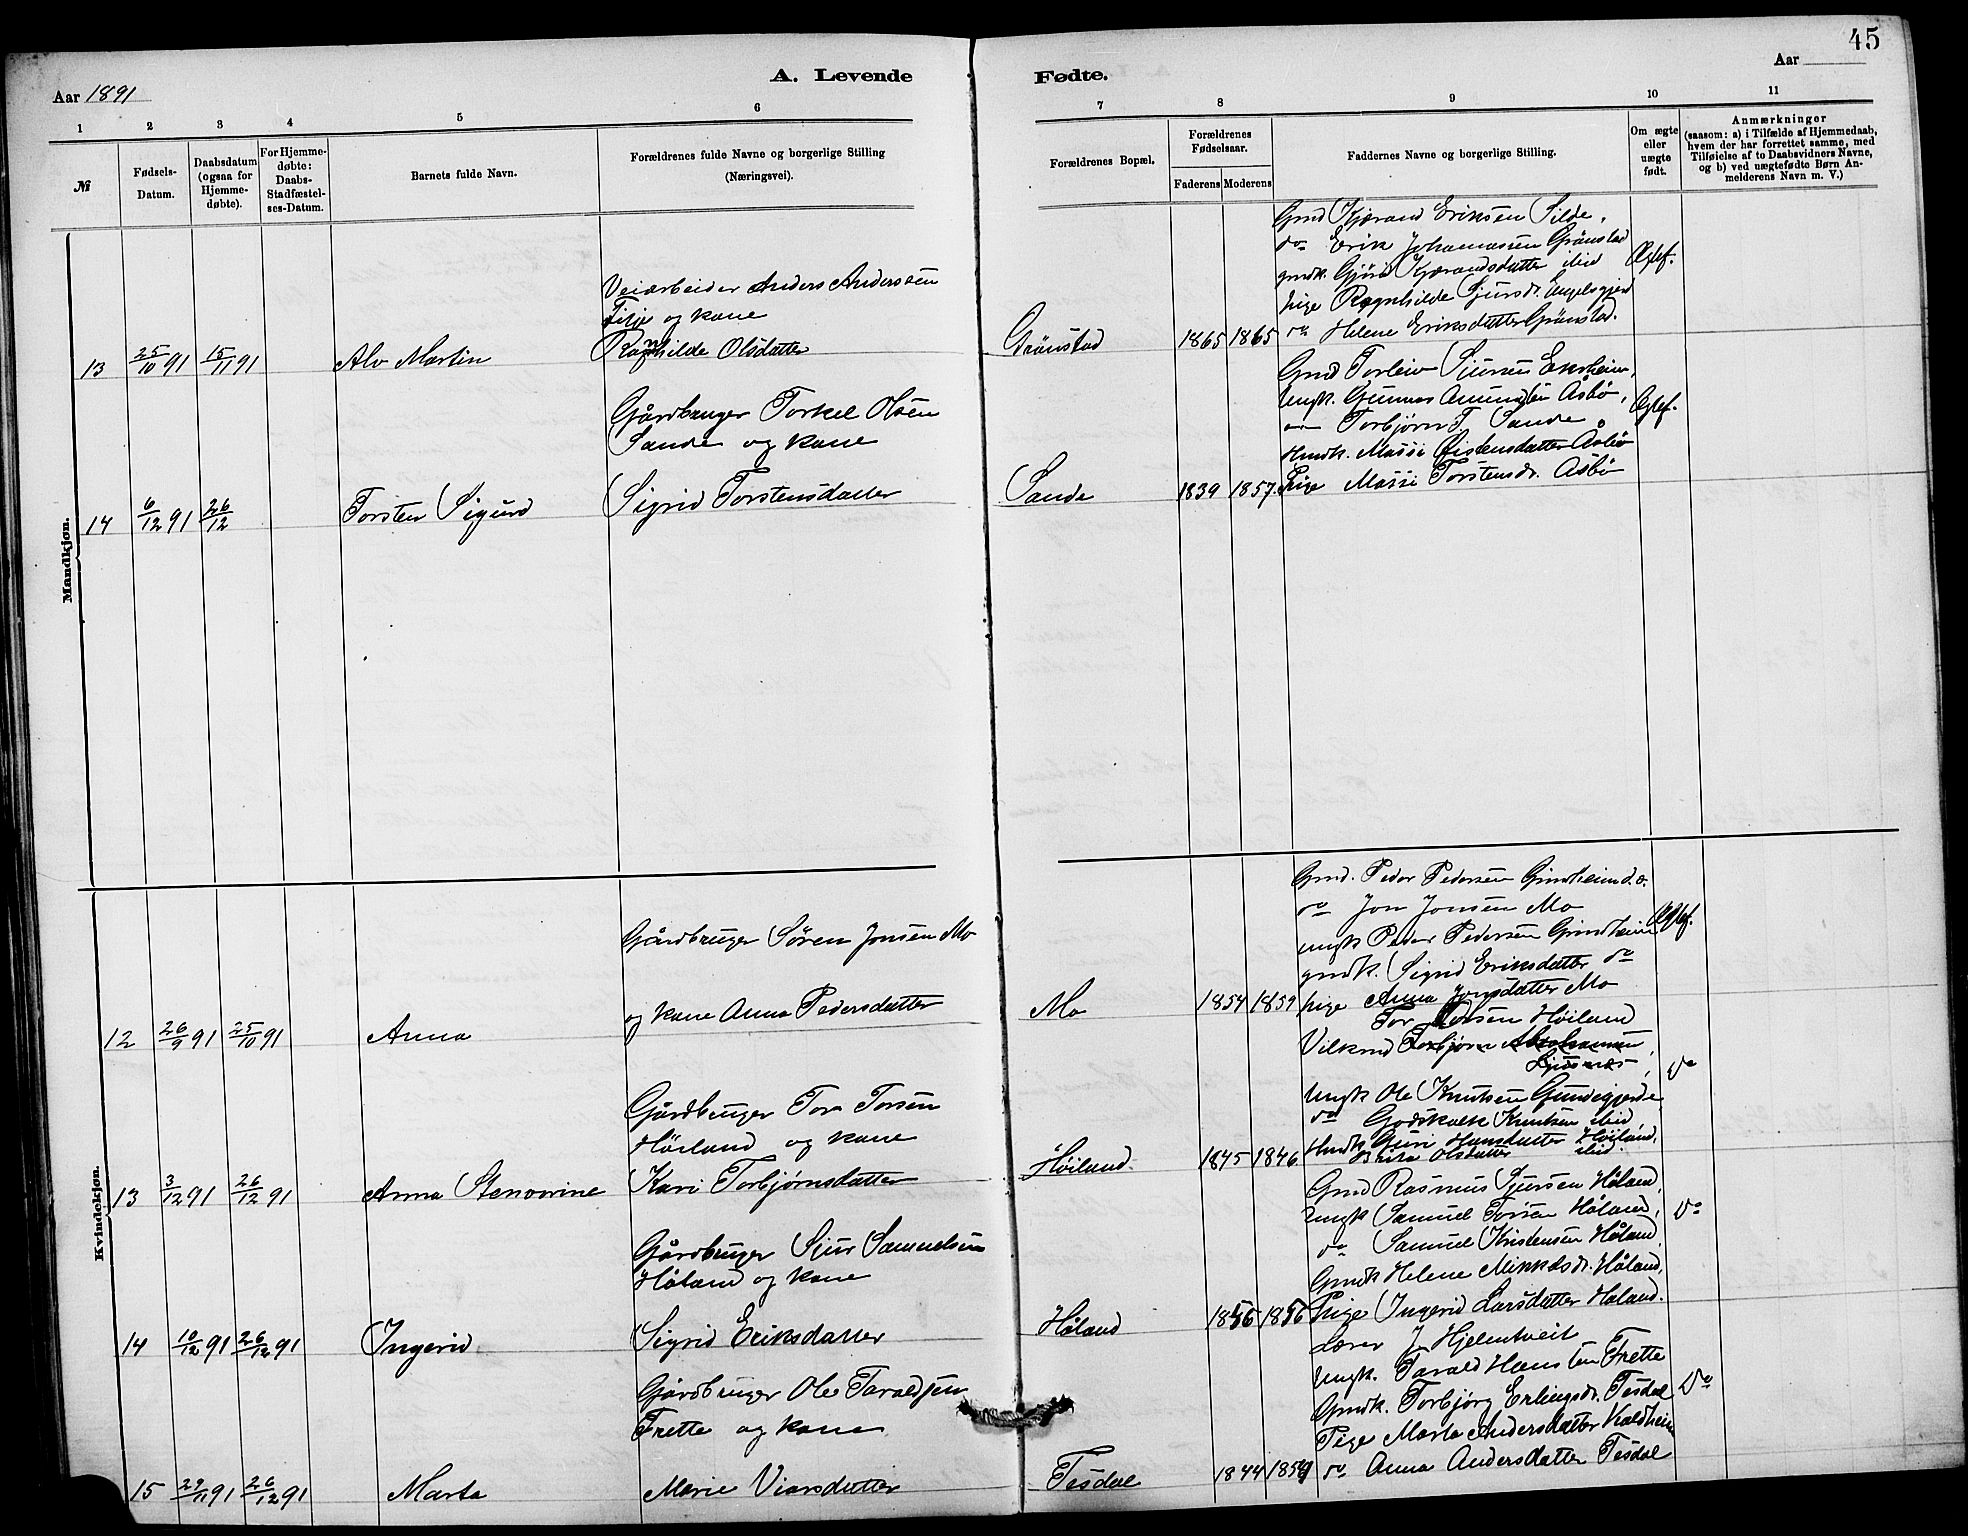 45
A. Levende
Fødte.
Aar 1891
Aar
1 2 3 4 5 6 7 8 9 10 11
№
Fødsels-
Datum.
Daabsdatum
(ogsaa for
Hjemme-
døbte).
For Hjemme-
døbte:
Daabs-
Stadfæstel-
ses-Datum.
Barnets fulde Navn.
Forældrenes fulde Navne og borgerlige Stilling
(Næringsvei).
Forældrenes Bopæl.
Forældrenes
Fødselsaar.
Faderens Moderens
Faddernes Navne og borgerlige Stilling.
Om ægte
eller
uægte
født.
Anmærkninger
(saasom: a) i Tilfælde af Hjemmedaab,
hvem der har forrettet samme, med
Tilføielse af to Daabsvidners Navne,
og b) ved uægtefødte Børn An-
melderens Navn m. V.)
Mandkjøn.
13 25/10 91 15/11 91
Alv Martin
Veiarbeider Anders Anderssen
Tilje og kone
Ragnhilde Olsdatter
Grönstad
1865 1865
Gmd Kjærand Eriksen Silde,
do Erik Johannessen Grönstad
gmdk. Gjöri Kjærandsdatter ibid
Pige Ragnhilde Sjursdr.
do Helene Eriksdatter Grönstad.
Ægtef.
14 6/12 91 26/12
Torsten Sigurd
Gårdbruger Torkel Olsen
Sande og kone
Sigrid Torstensdatter
Sande
1839 1857
Gmd Torleiv Sjursen Ekrheim,
Ungk. Gunnar Amundsen Åsbø,
Torbjörn T. Sande
Hmdk. Massi Øistensdatter Åsbø
Pige Massi Torstensdr. Åsbø
Ægtef.
Kvindekjøn.
12 26/9 91 25/10 91
Anna
Gårdbruger Sören Jonsen Mo
og kone Anna Pedersdatter
Mo
1854 1859
Gmd. Peder Pedersen Grindheim d.æ.
do Jon Jonsen Mo
ungk Peder Pedersen Grindheim
gmdk. Sigrid Eriksdatter do
pige Anna Jonsdatter Mo
Ægtef.
13 3/12 91 26/12 91
Anna Stenovine
Gårdbruger Tor Torsen
Höiland og kone
Kari Torbjörnsdatter
Höiland.
1845 1846
Tor Torsen Höiland
Torbjörn Abrahamsen
Ljösnes,
Ungk Ole Knutsen Gundegjerde,
do Godskalk Knutsen ibid
Hmdk Guri Hansdatter Höiland,
Brita Olsdatter ibid.
do
14 10/12 91 26/12 91
Ingerid
Gårdbruger Sjur Samuelsen
Håland og kone
Sigrid Eriksdatter
Håland
1856 1856
Gmd Rasmus Sjursen Håland,
Ungk Samuel Torsen Håland,
do Samuel Kristensen Håland,
Gmdk Helene Mikkelsdr. Håland,
Pige Ingerid Larsdatter Håland.
do
15 29/11 91 26/12 91
Marta
Gårdbruger Ole Taraldsen
Frette og kone
Marie Viarsdatter
Tesdal
1844 1859
Lærer J Hjelmtveit
Ungk. Tarald Hansen Frette
Gmdk. Torbjörg Erlingsdr. Tesdal
Pige Marta Andersdatter Kaldheim
do Anna Andersdatter Tesdal
Do